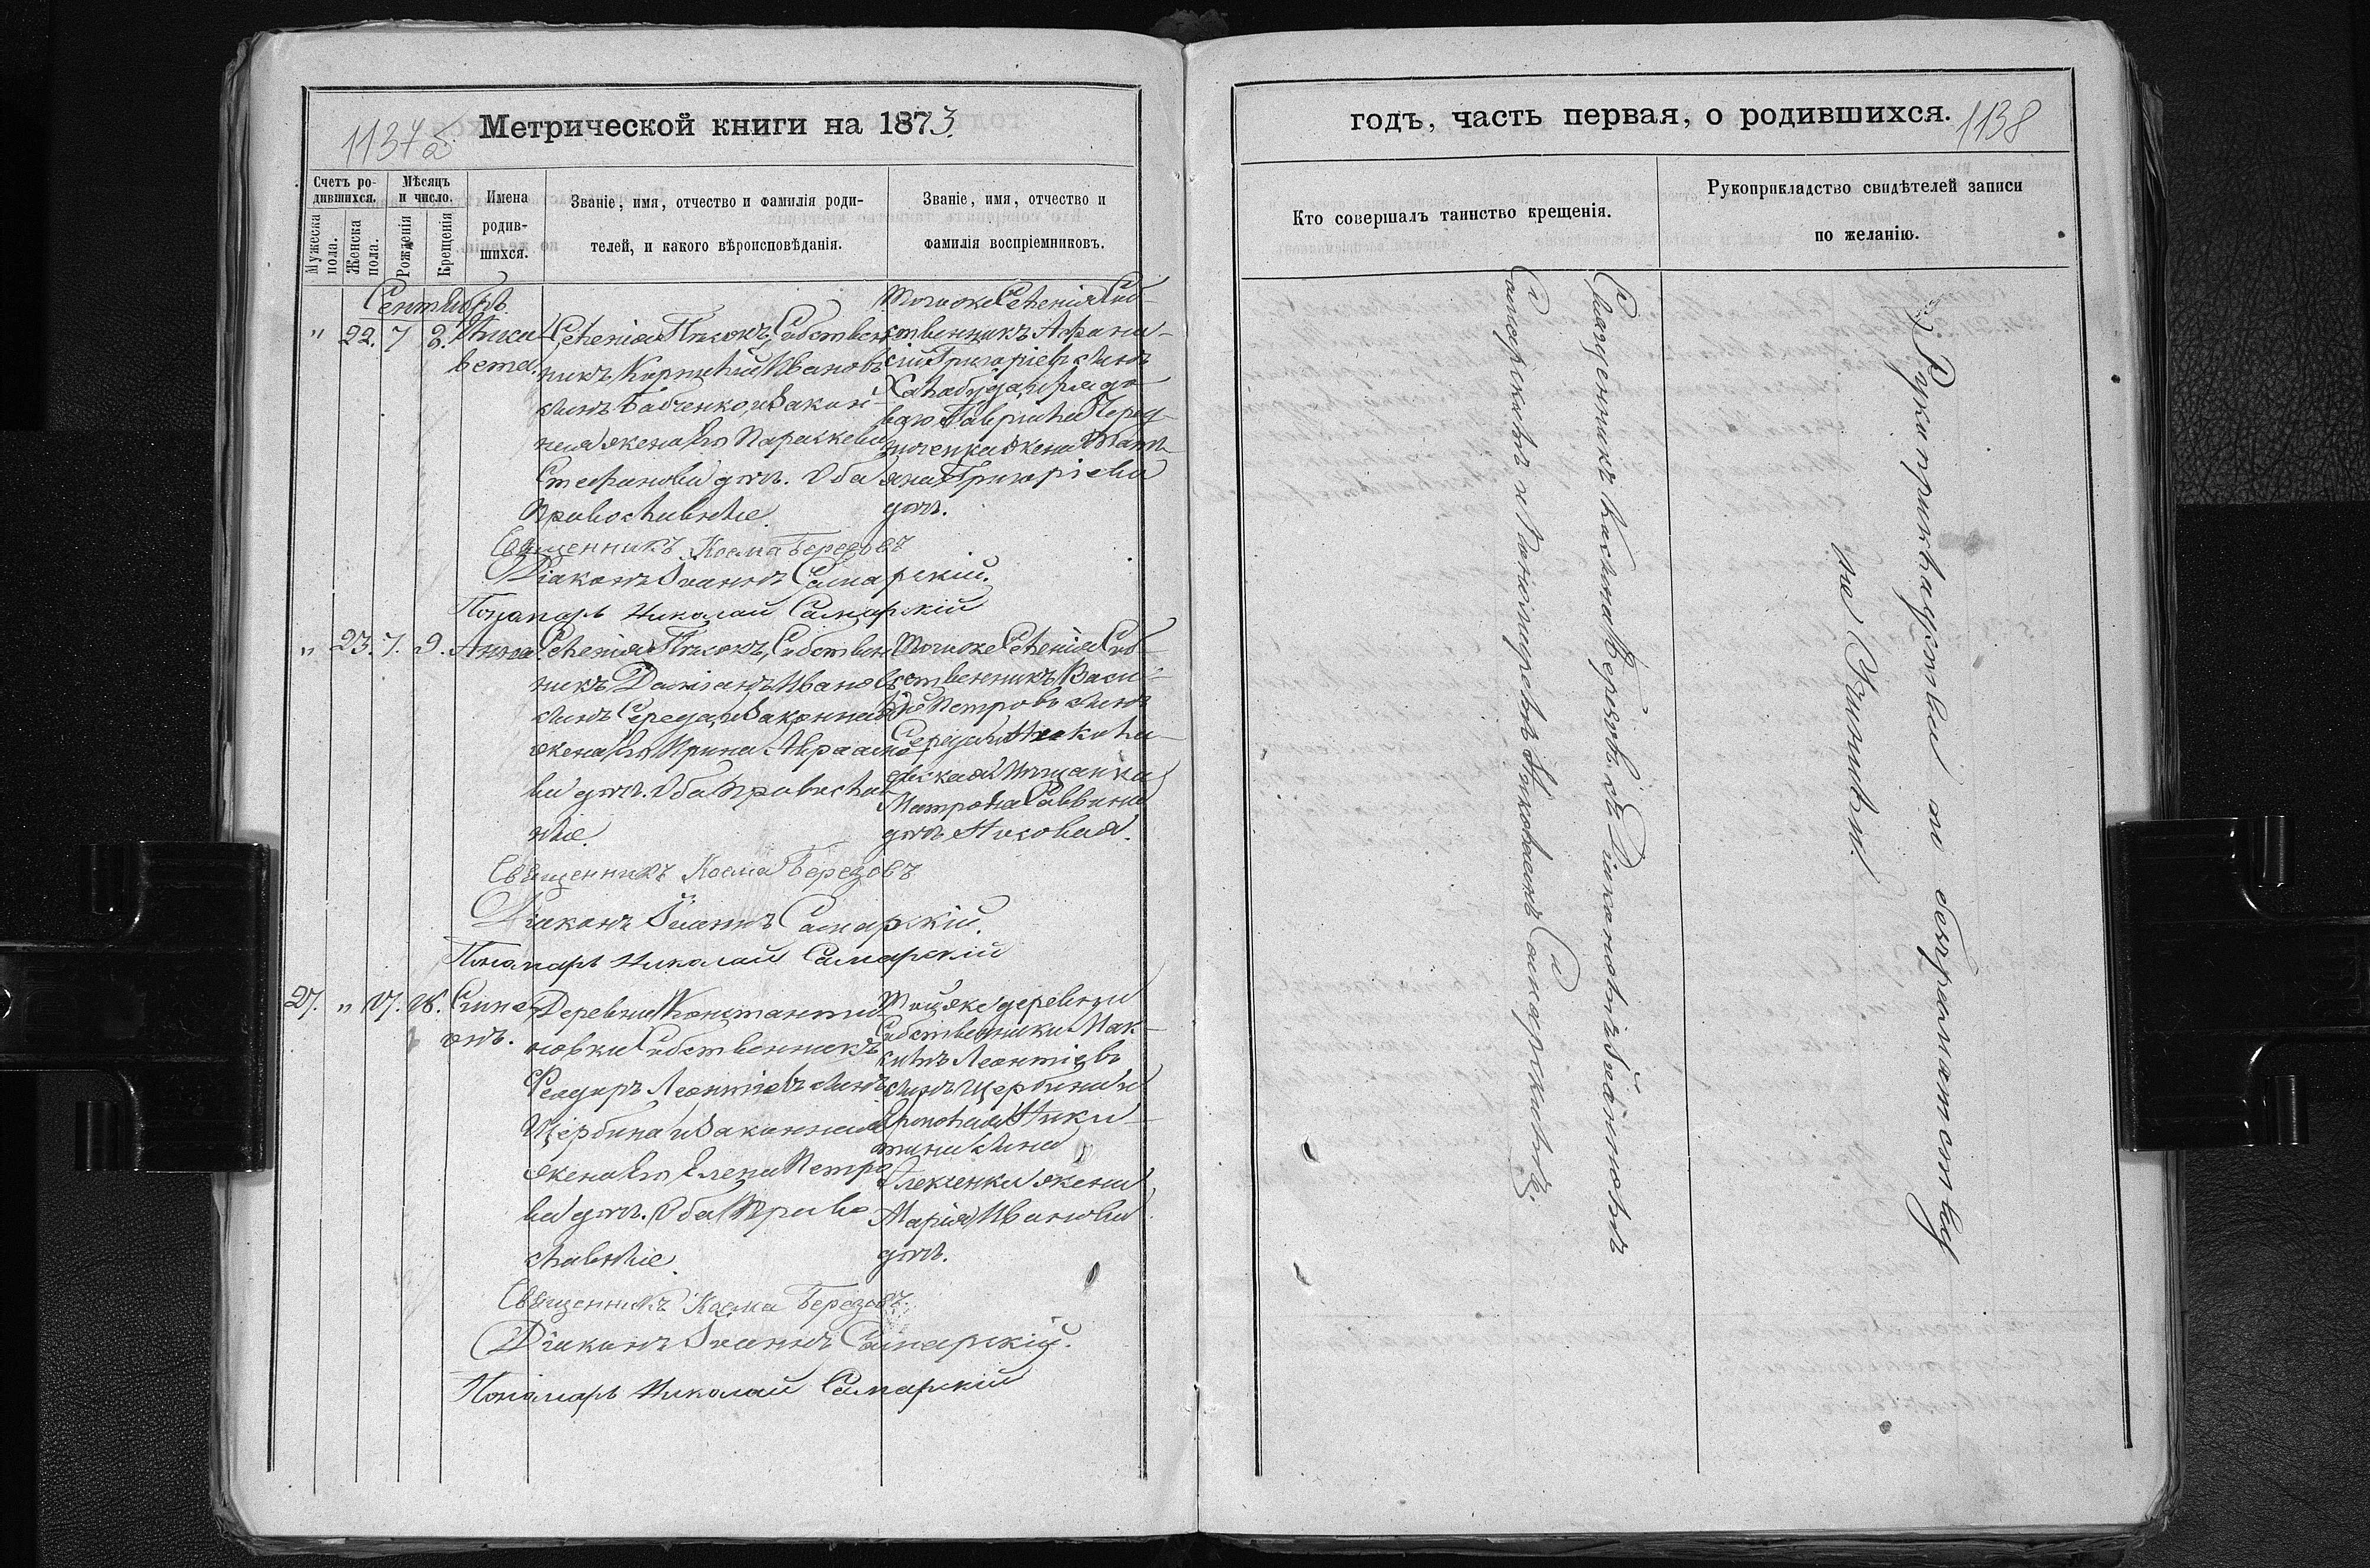 Метрической книги на 1873.
1137
Счетъ ро-
дившихся.
Мужеска
пола.
Женска
пола.
Мѣсяцъ
и число.
Рожденія
Крещенія
Имена
родив-
шихся.
Званіе, имя, отчество и фамилія роди-
телей, и какого вѣроисповѣданія.
Званіе, имя, отчество и
фамилія воспріемниковъ.
Сентябрь.
" 22. 7
Елиса-
вета.
Селенія Собствен-
никъ Иванов
сынъ Бабченко, и закон-
ная жена его Параскева
Стефанова дочь. Оба
православные.
Тогоже Селенія Соб-
ственникъ Афана-
сій Григоріевъ сынъ
и рядо-
ваго Гавріила
жена Тать-
яна Григоріева
дочь.
Священникъ Косма Березовъ
Діаконъ Іоаннъ Самарскій.
Пономарь Николай Самарскій
" 23. 7. 9. Анна.
Селенія Собствен-
никъ Даміанъ Ивановъ
сынъ Середа, и законная
жена его Ирина Авраамо-
ва дочь. Оба православ-
ные.
Тогоже Селенія Соб-
ственникъ Васи-
лій Петровъ сынъ
Середа и
мѣщанка
Матрона Саввина
дочь
Священникъ Косма Березовъ
Діаконъ Іоаннъ Самарскій.
Пономарь Николай Самарскій
27. " 17.
Симе-
онъ.
Деревни Константи-
новки Собственникъ
Феодоръ Леонтіевъ сынъ
Щербина и законная
жена его Елена Петро-
ва дочь. Оба право-
славные.
Той же деревни
Собственники Мак-
симъ Леонтіевъ
сынъ Щербина и
Ники-
тина сына
Олексенка жена
Марія Иванова
дочь.
Священникъ Косма Березовъ.
Діаконъ Іоаннъ Самарскій.
Пономарь Николай Самарскій
годъ, часть первая, о родившихся.
1138
Кто совершалъ таинство крещенія.
Рукоприкладство свидѣтелей записи
по желанію.
Священникъ Косма Березовъ съ Діакономъ Іоанномъ
Самарскимъ и Пономаремъ Николаемъ Самарскимъ.
Рукоприкладства по безграмотству
не